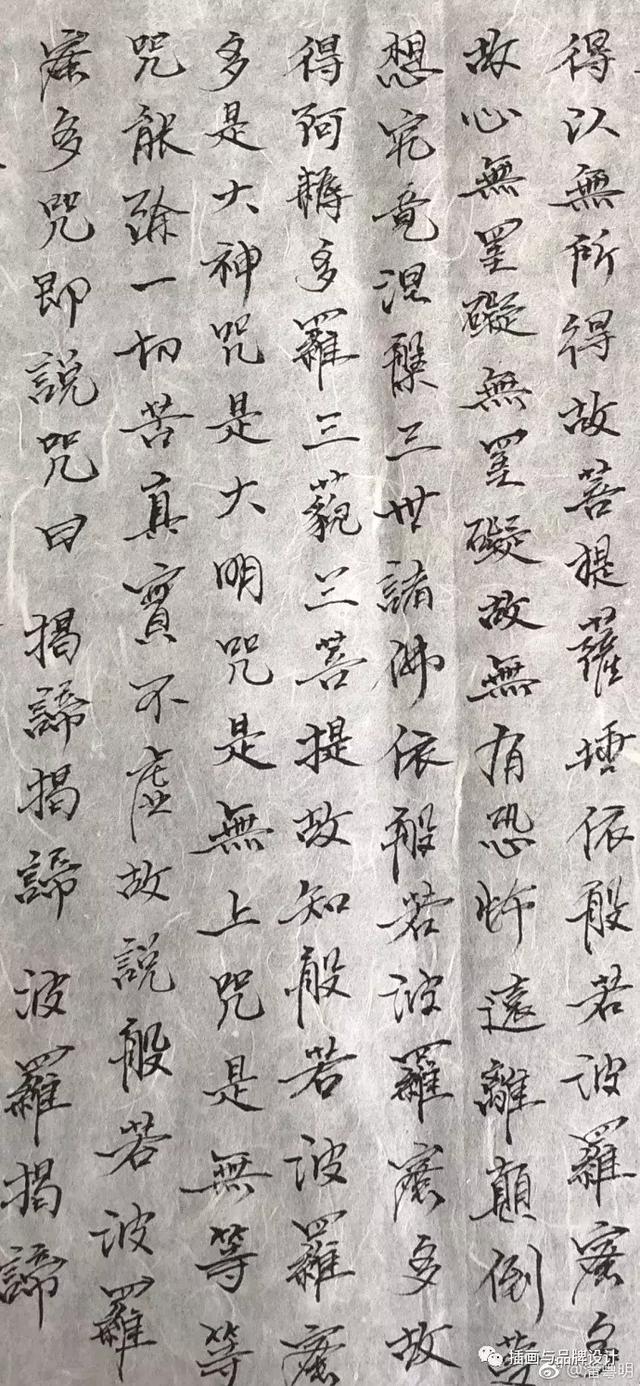 得以無所得故菩提薩埵依般若波羅蜜多
故心無罣礙無罣礙故無有恐怖遠離顛倒夢
想究竟涅槃三世諸佛依般若波羅蜜多故
得阿耨多羅三藐三菩提故知般若波羅蜜
多是大神咒是大明咒是無上咒是無等等
咒能除一切苦真實不虛故說般若波羅
蜜多咒即說咒曰 揭諦揭諦 波羅揭諦
插画与品牌设计
@潘粤明